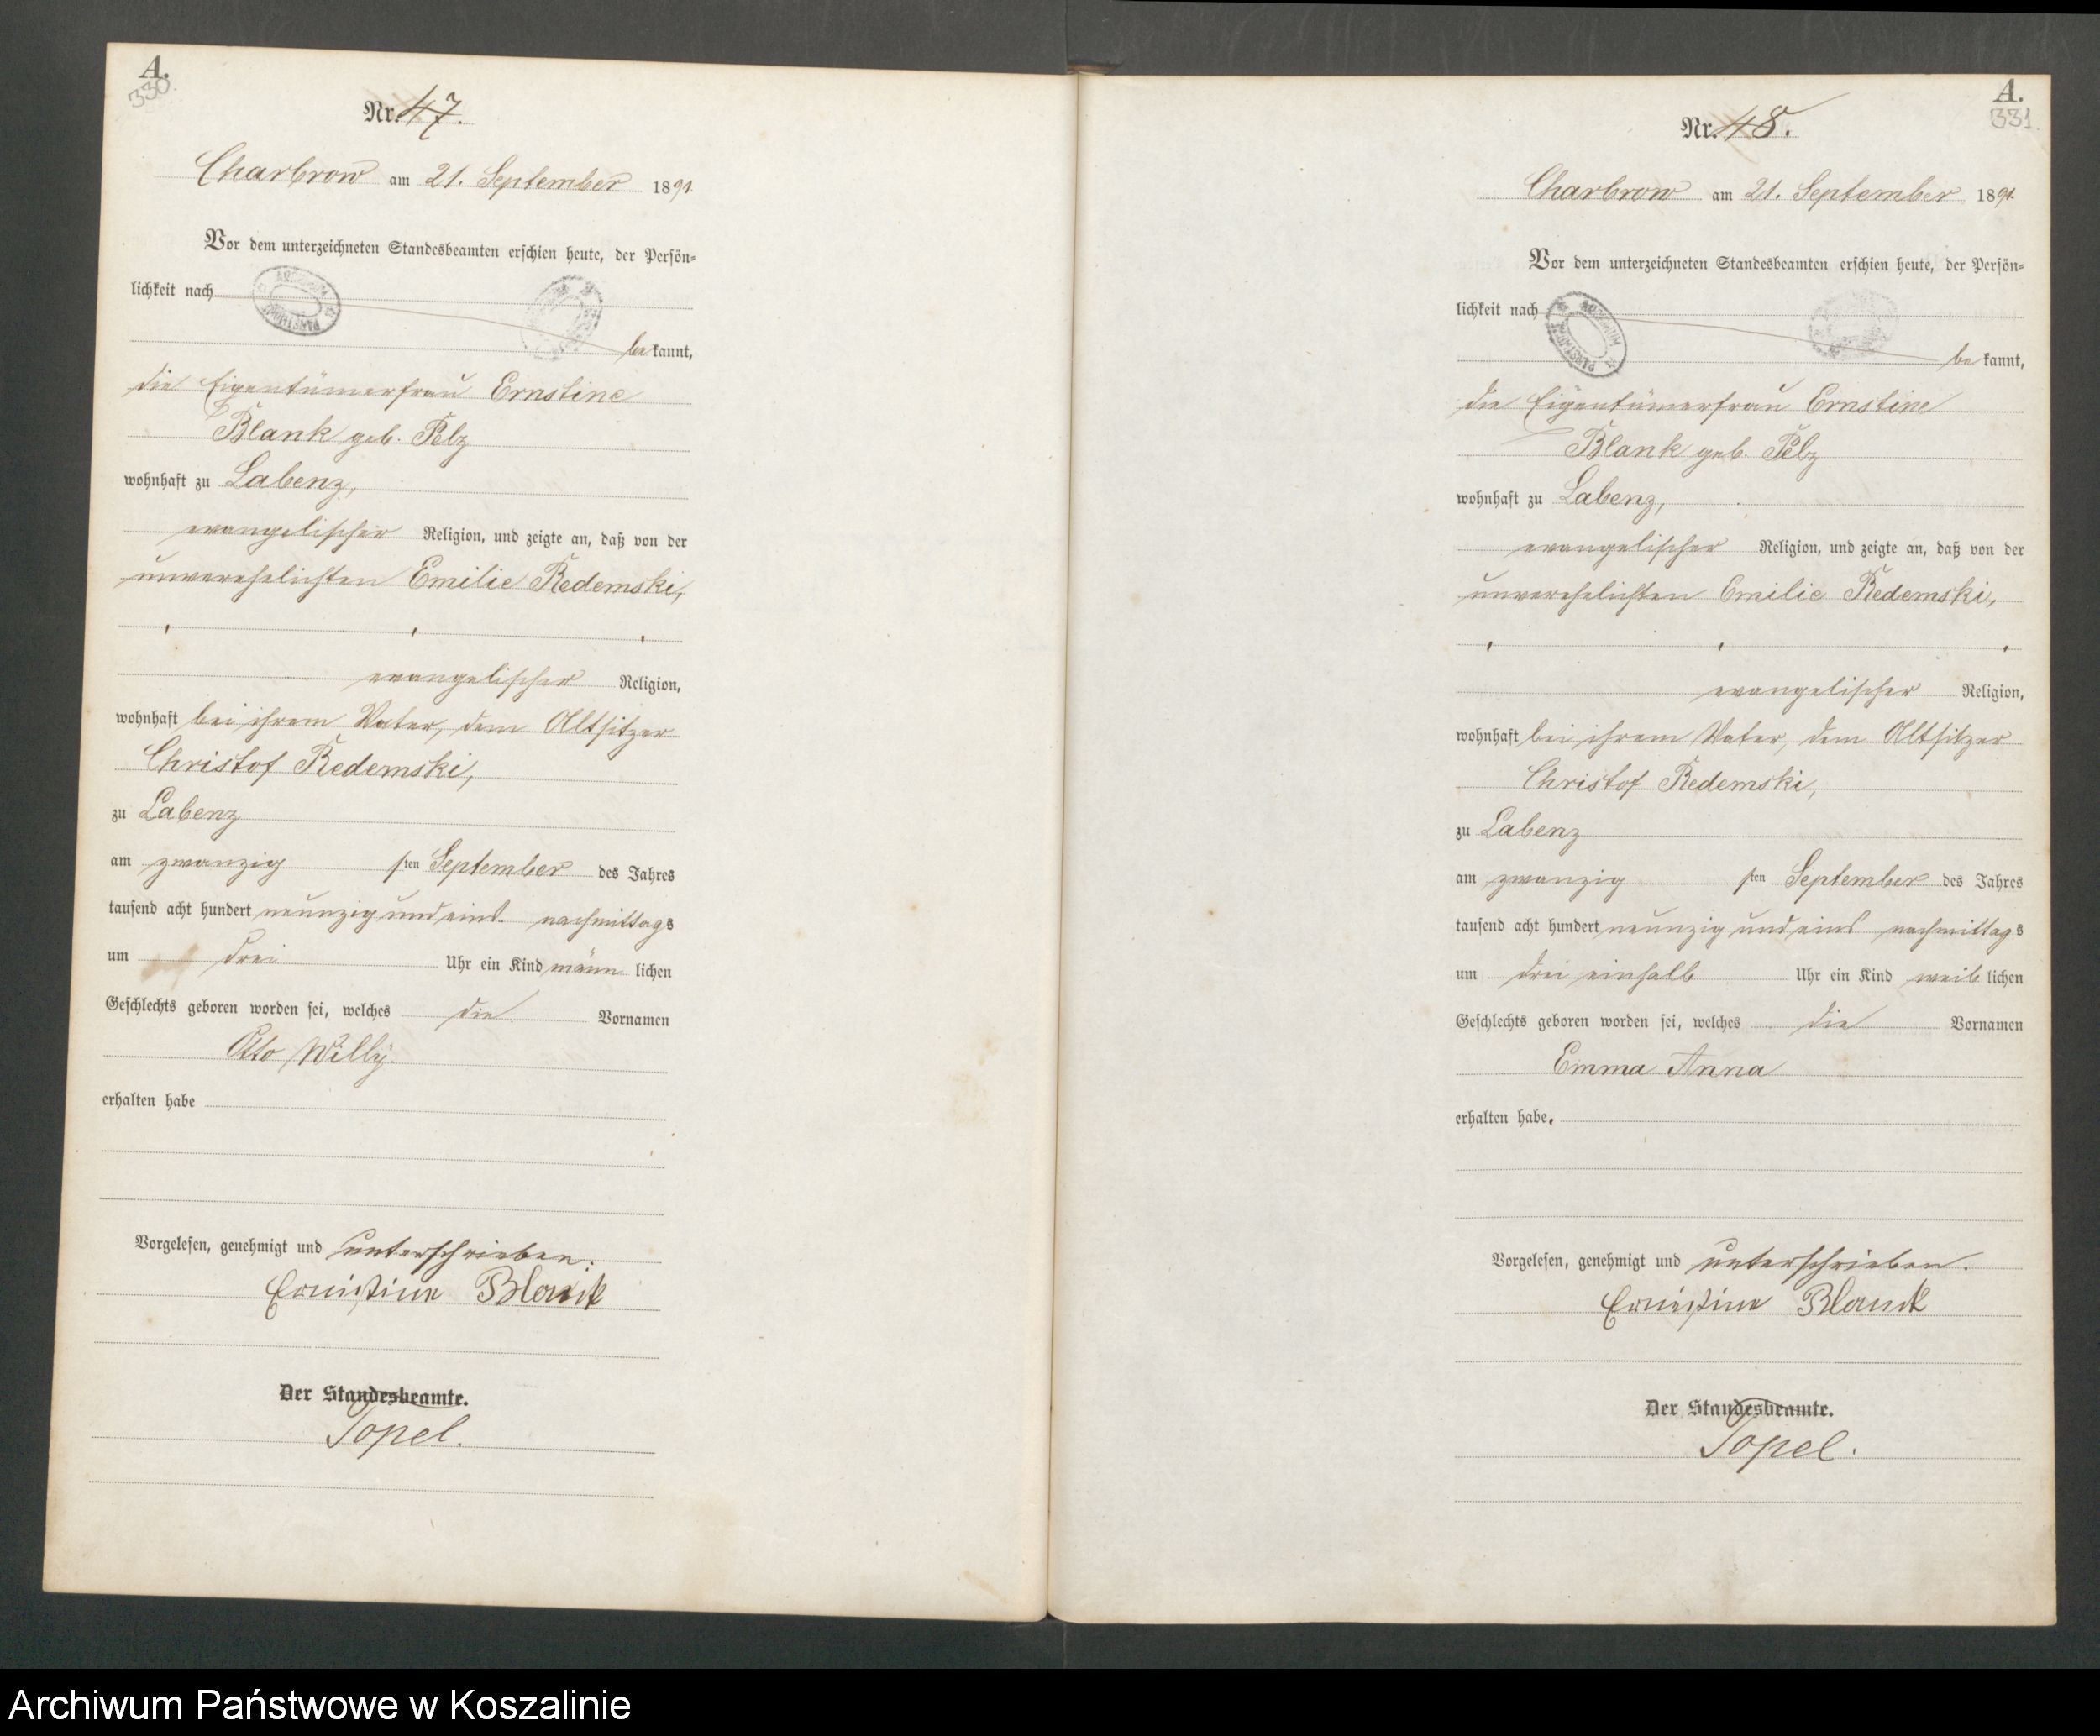 A.
330.
Nr. 47.
Charbrow am 21. September 1891.
Vor dem unterzeichneten Standesbeamten erschien heute, der Persön-
lichkeit nach
bekannt,
die Eigentümerfrau Ernstine
Blank geb. Pelz
wohnhaft zu Labenz,
evangelischer Religion, und zeigte an, daß von der
unverehelichten Emilie Redemski,
evangelischer Religion,
wohnhaft bei ihrem Vater, dem Altsitzer
Christof Redemski,
zu Labenz
am zwanzigsten September des Jahres
tausend acht hundert neunzig und eins nachmittags
um drei Uhr ein Kind männlichen
Geschlechts geboren worden sei, welches die Vornamen
Otto Willy.
erhalten habe
Vorgelesen, genehmigt und unterschrieben.
Ernistine Blank
Der Standesbeamte.
Topel.
A.
331
Nr. 48.
Charbrow am 21. September 1891.
Vor dem unterzeichneten Standesbeamten erschien heute, der Persön-
lichkeit nach
bekannt,
die Eigentümerfrau Ernstine
Blank geb. Pelz
wohnhaft zu Labenz,
evangelischer Religion, und zeigte an, daß von der
unverehelichten Emilie Redemski,
evangelischer Religion,
wohnhaft bei ihrem Vater, dem Altsitzer
Christof Redemski,
zu Labenz
am zwanzigsten September des Jahres
tausend acht hundert neunzig und eins nachmittags
um drei einhalb Uhr ein Kind weiblichen
Geschlechts geboren worden sei, welches die Vornamen
Emma Anna
erhalten habe.
Vorgelesen, genehmigt und unterschrieben.
Ernistine Blank
Der Standesbeamte.
Topel.
Archiwum Państwowe w Koszalinie